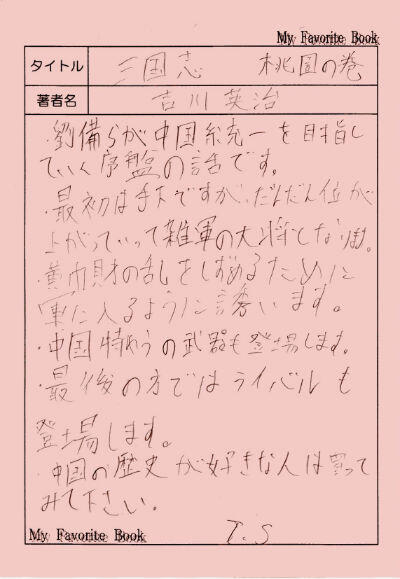 My Favorite Book
タイトル 三国志 桃園の巻
著者名 吉川英治
・劉備らが中国統一を目指し
ていく序盤の話です。
・最初は手下ですが、だんだん位が
上がっていって雑軍の大将になり
・黄巾財の乱をしずめるために
軍に入るように誘います。
・中国特わうの武器も登場します。
・最後の方ではライバルも
登場します。
・中国の歴史が好きな人は買って
みて下さい。
My Favorite Book T.S